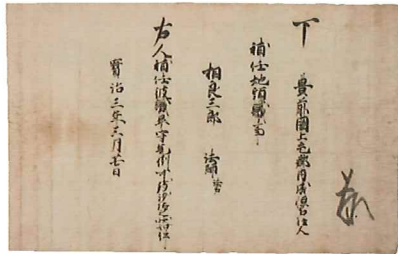 下　豊前國上毛郡内成恒名住人
補任地頭職事
相良三郎　法師
右人補任彼職早守先例可致沙汰之状如件
寳治三年 月廿日